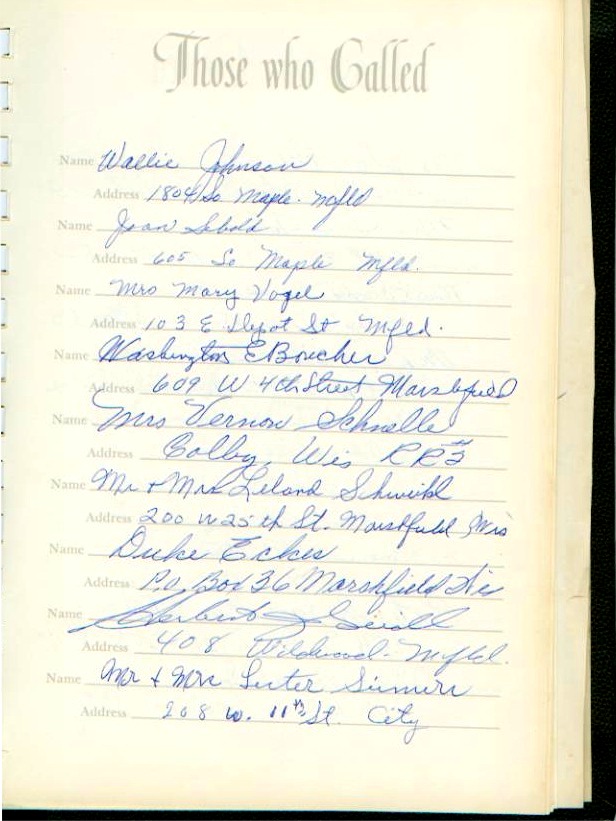 Those who Called
Name Wallie Johnson
Address 1804 So Maple. Mfld
Name Joan Sebold
Address 605 So Maple Mfld.
Name Mrs Mary Vogel
Address 103 E Depot St Mfld.
Name Washington E Boucher
Address 609 W 4th Street Marshfield
Name Mrs Vernon Schnelle
Address Colby, Wis RR#3
Name Mr + Mrs Leland
Address 200 W 25th St. Marshfield, Wis
Name Duke Eckes
Address P.O. Box 36 Marshfield Wis
Name Herbert J Seidl
Address 408 Wildwood. Mfld.
Name Mr + Mrs Lester
Address 208 W. 11th St. City